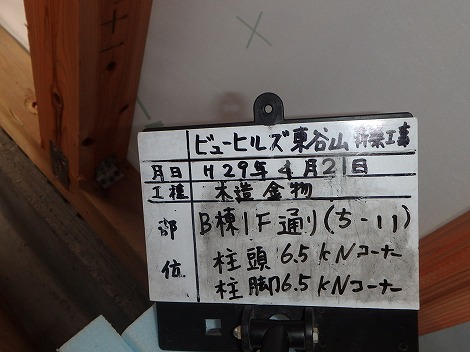 ビューヒルズ東谷山新築工事
月日 H29年4月21日
工種 木造金物
部位 B棟1F通り(ち-11)
柱頭 6.5kNコーナー
柱脚 6.5kNコーナー